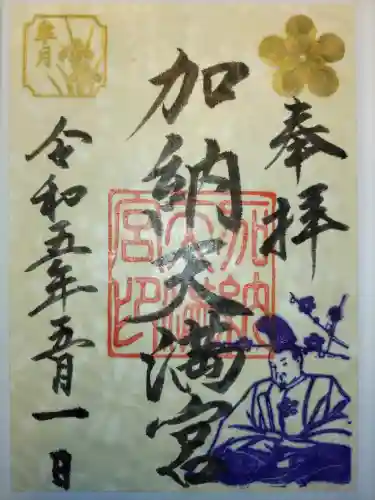 奉拝
加納天満宮
加納天満宮印
皐月
令和五年五月一日